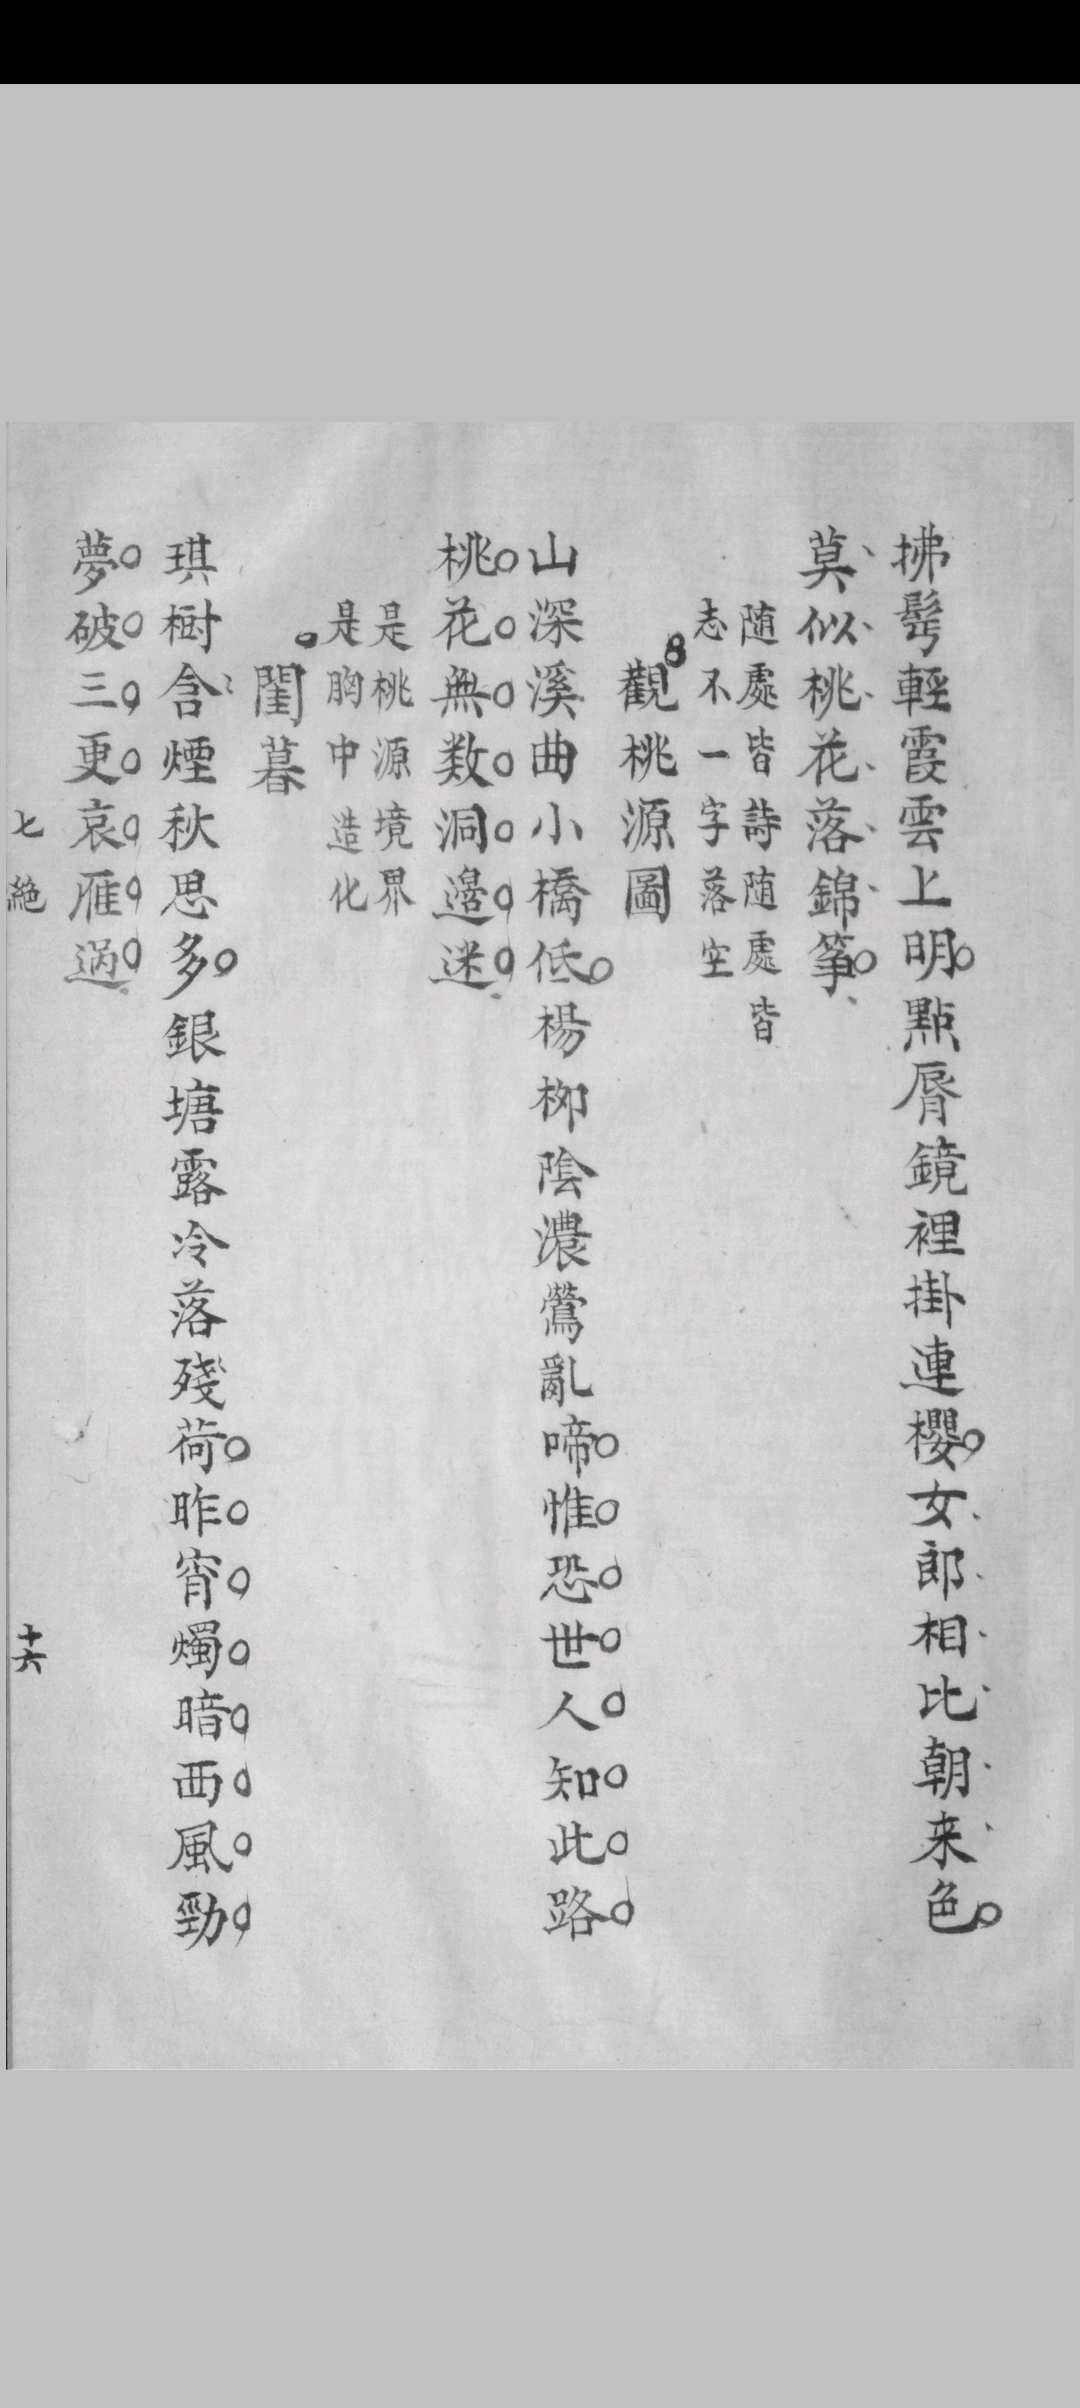 拂髩輕霞雲上明點脣鏡裡掛連櫻女郎相比朝来色
莫似桃花落錦箏
随處皆詩随處皆
志不一字落空
觀桃源圖
山深溪曲小橋低楊栁陰濃鶯亂啼惟恐世人知此路
桃花無数洞邉迷
是桃源境界
是胸中造化
閨暮
琪樹含煙秋思多銀塘露冷落殘荷昨宵燭暗西風勁
夢破三更哀雁過
七絶
十六